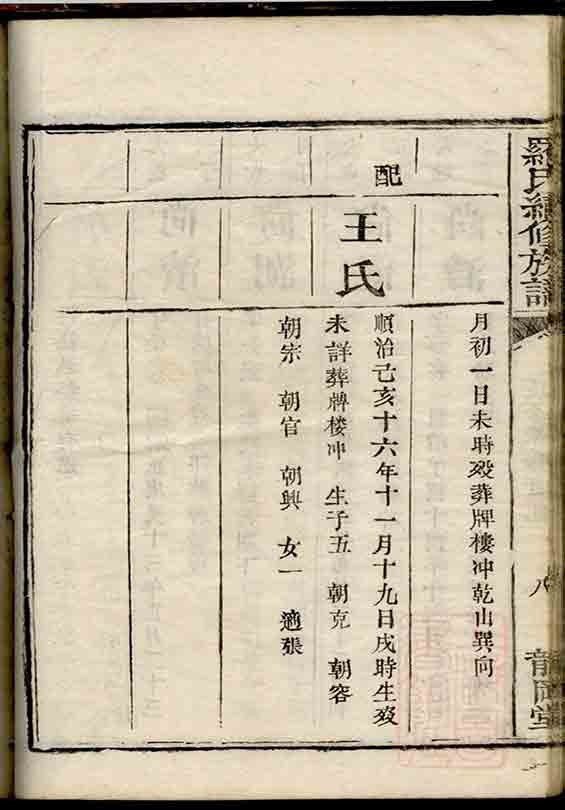 羅氏續修族譜
八
龍
堂
月初一日未時殁葬牌樓冲乾山巽向
配
王氏
順治己亥十六年十一月十九日戌時生殁
未詳葬牌楼冲 生子五 朝克 朝容
朝宗 朝官 朝興 女一 適張